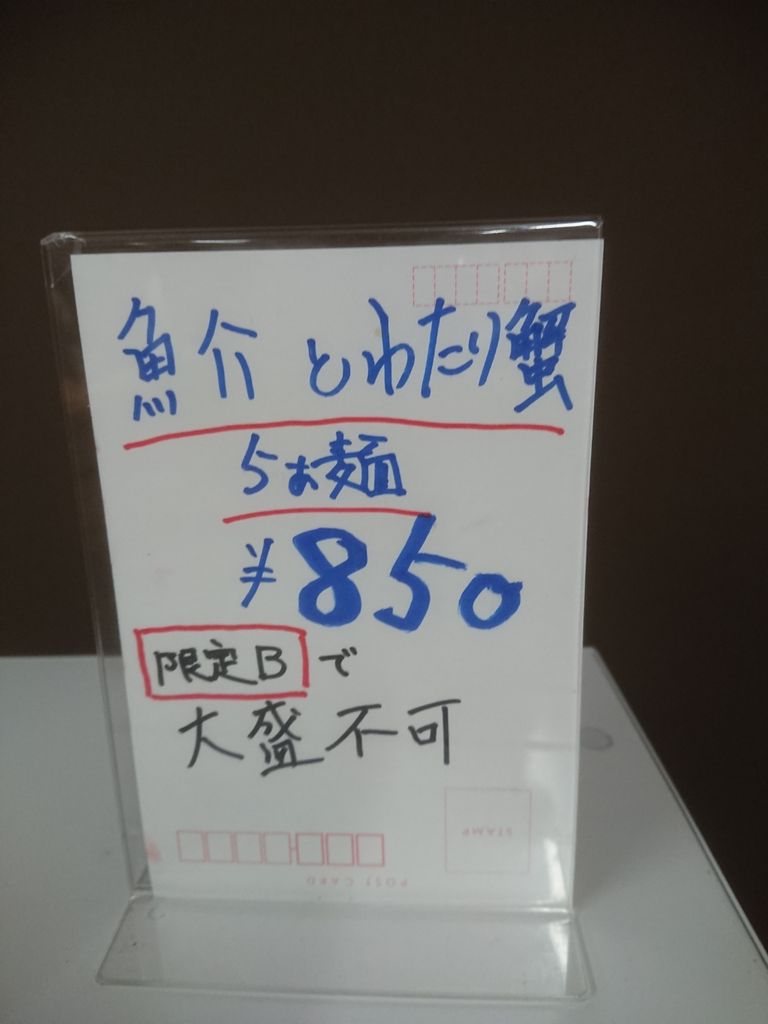 魚介とわたり蟹
らぁ麺
¥850
限定Bで
大盛不可
STAMP
POST CARD